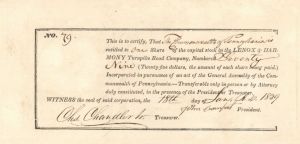 NO. 79.
This is to certify, That The Commonwealth of Pennsylvania is
entitled to One Share of the capital stock in the LENOX & HAR-
MONY Turnpike Road Company, Numbered Seventy
Nine (Twenty five dollars, the amount of each share being paid)
Incorporated in pursuance of an act of the General Assembly of the Com-
monwealth of Pennsylvania—Transferable only in person or by Attorney
duly constituted, in the presence of the President or Treasurer
WITNESS the seal of said corporation, the 18th day of 1829
Chs Chandler Treasurer. President.